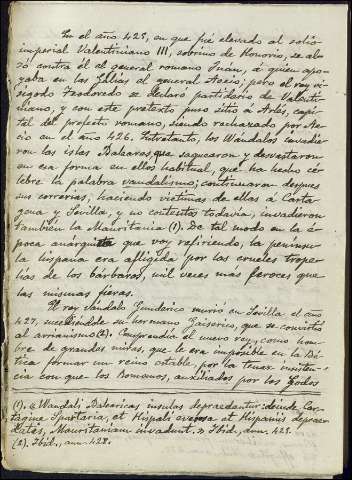 En el año 425, en que fué elevado al solio
imperial Valentiniano III, sobrino de Honorio, se al-
zó contra él el general romano Juan, á quien apo-
yaba en las Galias el general Aecio; pero el rey vi-
sigodo Teodoredo se declaró partidario de Valenti-
niano, y con este pretexto puso sitio á Arlés, capi-
tal del prefecto romano, siendo rechazado por Ae-
cio en el año 426. Entretanto, los Wándalos invadie-
ron las islas Baleares, que saquearon y desvastaron
en esa forma en ellos habitual, que ha hecho cé-
lebre la palabra vandalismo; continuaron despues
sus correrias, haciendo víctimas de ellas á Carta-
gena y Sevilla, y no contentos todavía, invadieron
tambien la Mauritania (1). De tal modo en la é-
poca que voy refiriendo, la penínsu-
la hispana era afligida por las crueles trope-
lías de los bárbaros, mil veces mas feroces que
las mismas fieras.
El rey vándalo Gunderico murió en Sevilla el año
427, sucediéndole su hermano Gaiserico, que se convirtió
al arrianismo (2). Comprendia el nuevo rey, como hom-
bre de grandes miras, que le era imposible en la Bé-
tica formar un reino estable, por la tenaz resisten-
cia con que los Romanos, auxiliados por los godos
(1). « Wandali Balearicas insulas depraedantur: deinde Car-
tagine Spartaria, et Hispali eversa et Hispaniis depraee-
datis, Mauritaniam invadunt. » Ibid., ann. 425.
(2). Ibid., ann. 428.